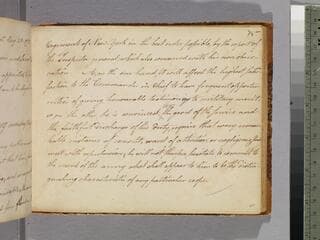 75
Regiments of New York in the best order possible by the report of
the Inspector general which also concurred with his own obser-
vation. As on the one hand it will afford the highest satis-
faction to the Commander in Chief to have frequent opportu-
nities of giving honourable testimony to military merit,
so on the other he is convinced the good of the service and
the faithful discharge of his duty, require that every remark-
able instance of want of attention or negligence
meet with he will not therefore hesitate to
the view of the army what shall appear to him to be the distin-
guishing characteristic of any particular corps.